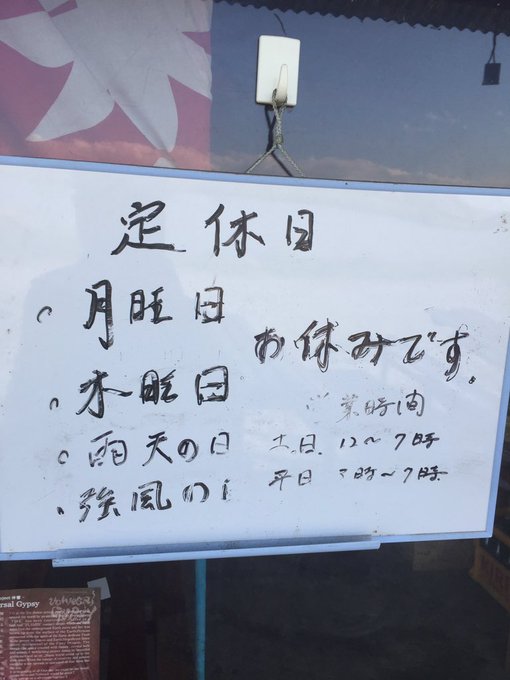 定休日
。月旺日
。木旺日
お休みです。
。雨天の日
。強風の
業時間
土.日 12〜7時
平日 時〜7時
rsal Gypsy